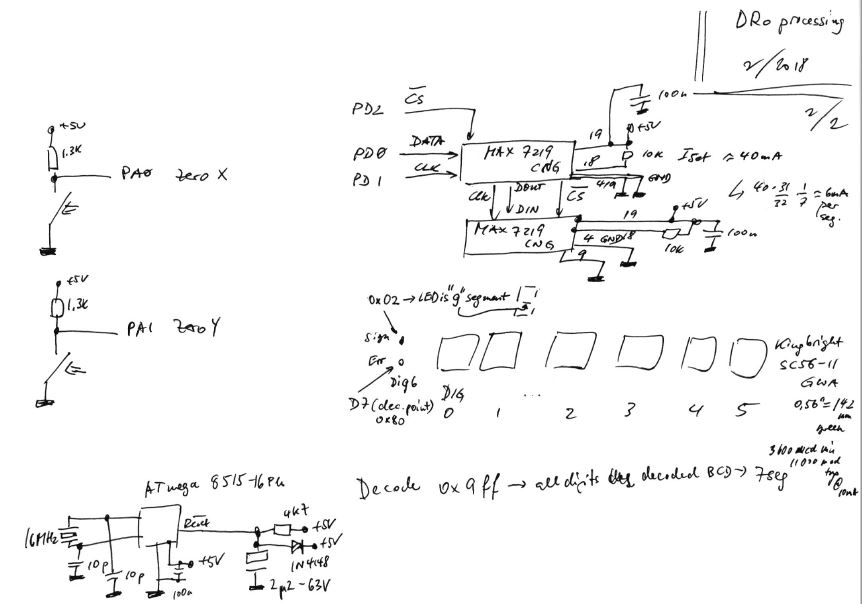 DRO processing
2/2018
2/2
+5V
1.3K
PA0 Zero X
+5V
1.3K
PA1 Zero Y
PD2 CS
100n
PD0 DATA
PD1 CLK
MAX 7219
CNG
19
+5V
18
10K
Iset ≈ 40mA
4,9
GND
↳ 40·31/32 1/7 = 6mA
per
seg.
Clk
DOUT
DIN
CS
MAX 7219
CNG
19
+5V
4 GND 18
10K
100n
9
0x02 → LED is "g" segment
Sign
Err
Dig6
D7 (dec. point)
0x80
DIG
0 1 ... 2 3 4 5
Kingbright
SC56-11
GWA
0,56" = 142
mm
green
3600 mcd min
11000 mcd
typ
@
10mA
Decode 0x9ff → all digits decoded BCD → 7seg
ATmega 8515-16PU
16MHz
10p
10p
Reset
+5V
100n
4k7
+5V
+5V
1N4148
2µ2-63V